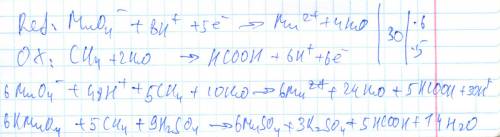 Red: MnO₄⁻ + 8H⁺ + 5e⁻ → Mn²⁺ + 4H₂O | 30 | ·6
Ox: CH₄ + 2H₂O → HCOOH + 6H⁺ + 6e⁻ | ·5
6MnO₄⁻ + 48H⁺ + 5CH₄ + 10H₂O → 6Mn²⁺ + 24H₂O + 5HCOOH + 30H⁺
6KMnO₄ + 5CH₄ + 9H₂SO₄ → 6MnSO₄ + 3K₂SO₄ + 5HCOOH + 14H₂O